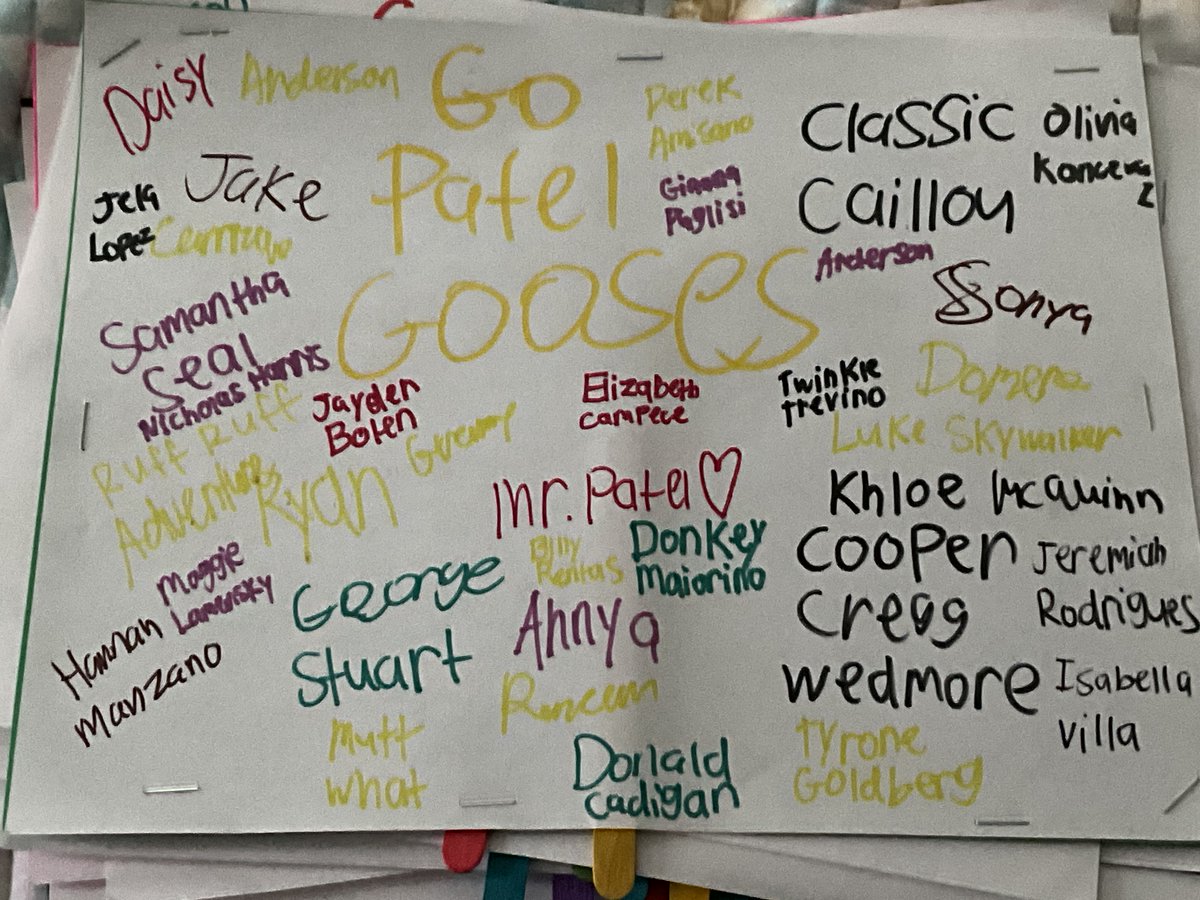 Daisy Anderson
Go
Patel
Gooses
Derek
Amisano
Classic
Caillou
Anderson
Olivia
Jake
Jela
Lopez
Gianna
Paglisi
Samantha
Seal
Nicholas Harris
Ssonya
Ruff Ruff
Adventures
Jayden
Bolen
Elizabeth
Campece
Twinkie
trevino
Luke Skywalker
Ryan
Mr. Patel♡
Khloe McQuinn
Maggie
Hannah
Manzano
George
Stuart
Billy
Rentas
Donkey
Maiorino
Cooper
Cregg
Wedmore
Jeremiah
Rodrigues
Ahnya
Isabella
Villa
Mutt
What
Donald
Cadigan
Tyrone
Goldberg